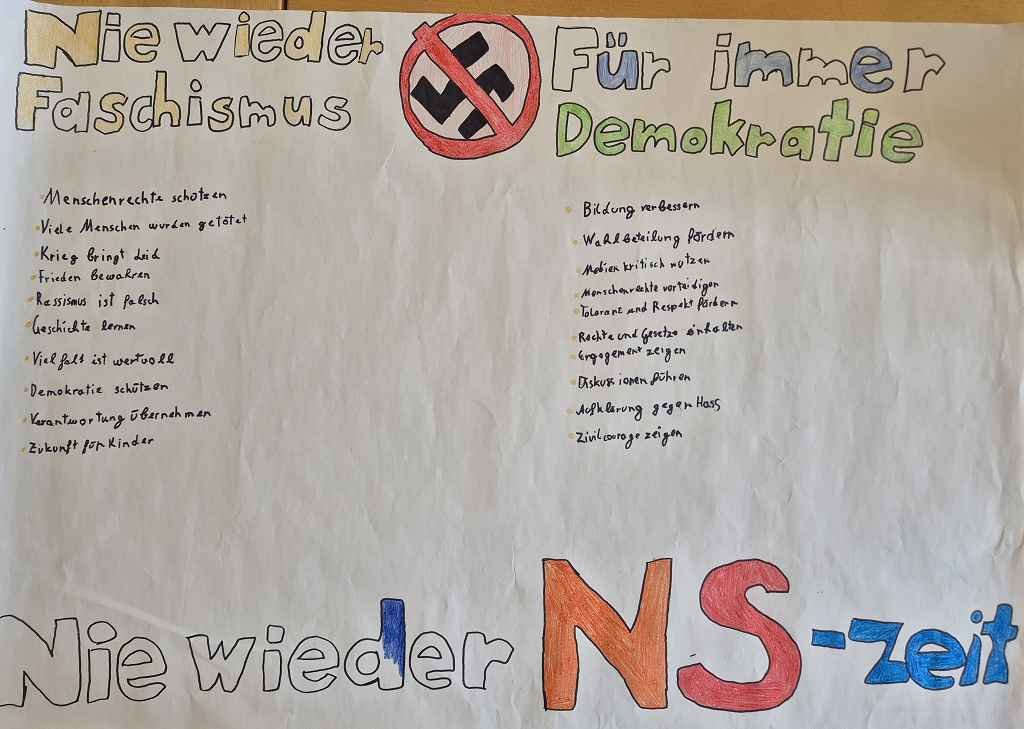 Nie wieder
Faschismus
Für immer
Demokratie
Menschenrechte schützen
Viele Menschen wurden getötet
Krieg bringt Leid
Frieden bewahren
Rassismus ist falsch
Geschichte lernen
Vielfalt ist wertvoll
Demokratie schützen
Verantwortung übernehmen
Zukunft für Kinder
Bildung verbessern
Wahlbeteilung fördern
Medien kritisch nutzen
Menschenrechte verteidigen
Toleranz und Respekt fördern
Rechte und Gesetze einhalten
Engagement zeigen
Diskussionen führen
Aufklärung gegen Hass
Zivilcourage zeigen
Nie wieder NS-zeit